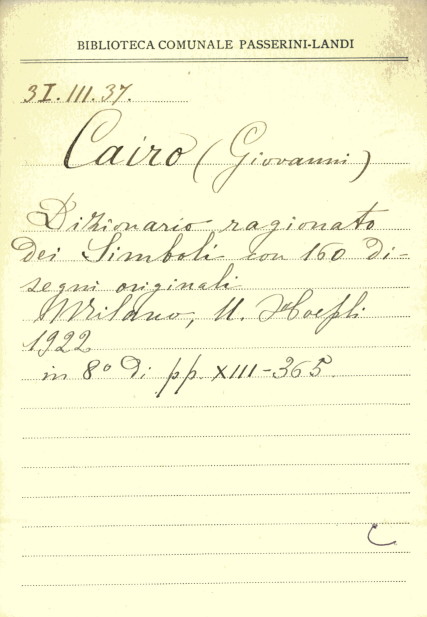 BIBLIOTECA COMUNALE PASSERINI-LANDI
3I.III.37.
Cairo (Giovanni)
Dizionario ragionato
dei Simboli con 160 di-
segni originali
Milano, U. Hoepli
1922
in 8° di pp. XIII-365.